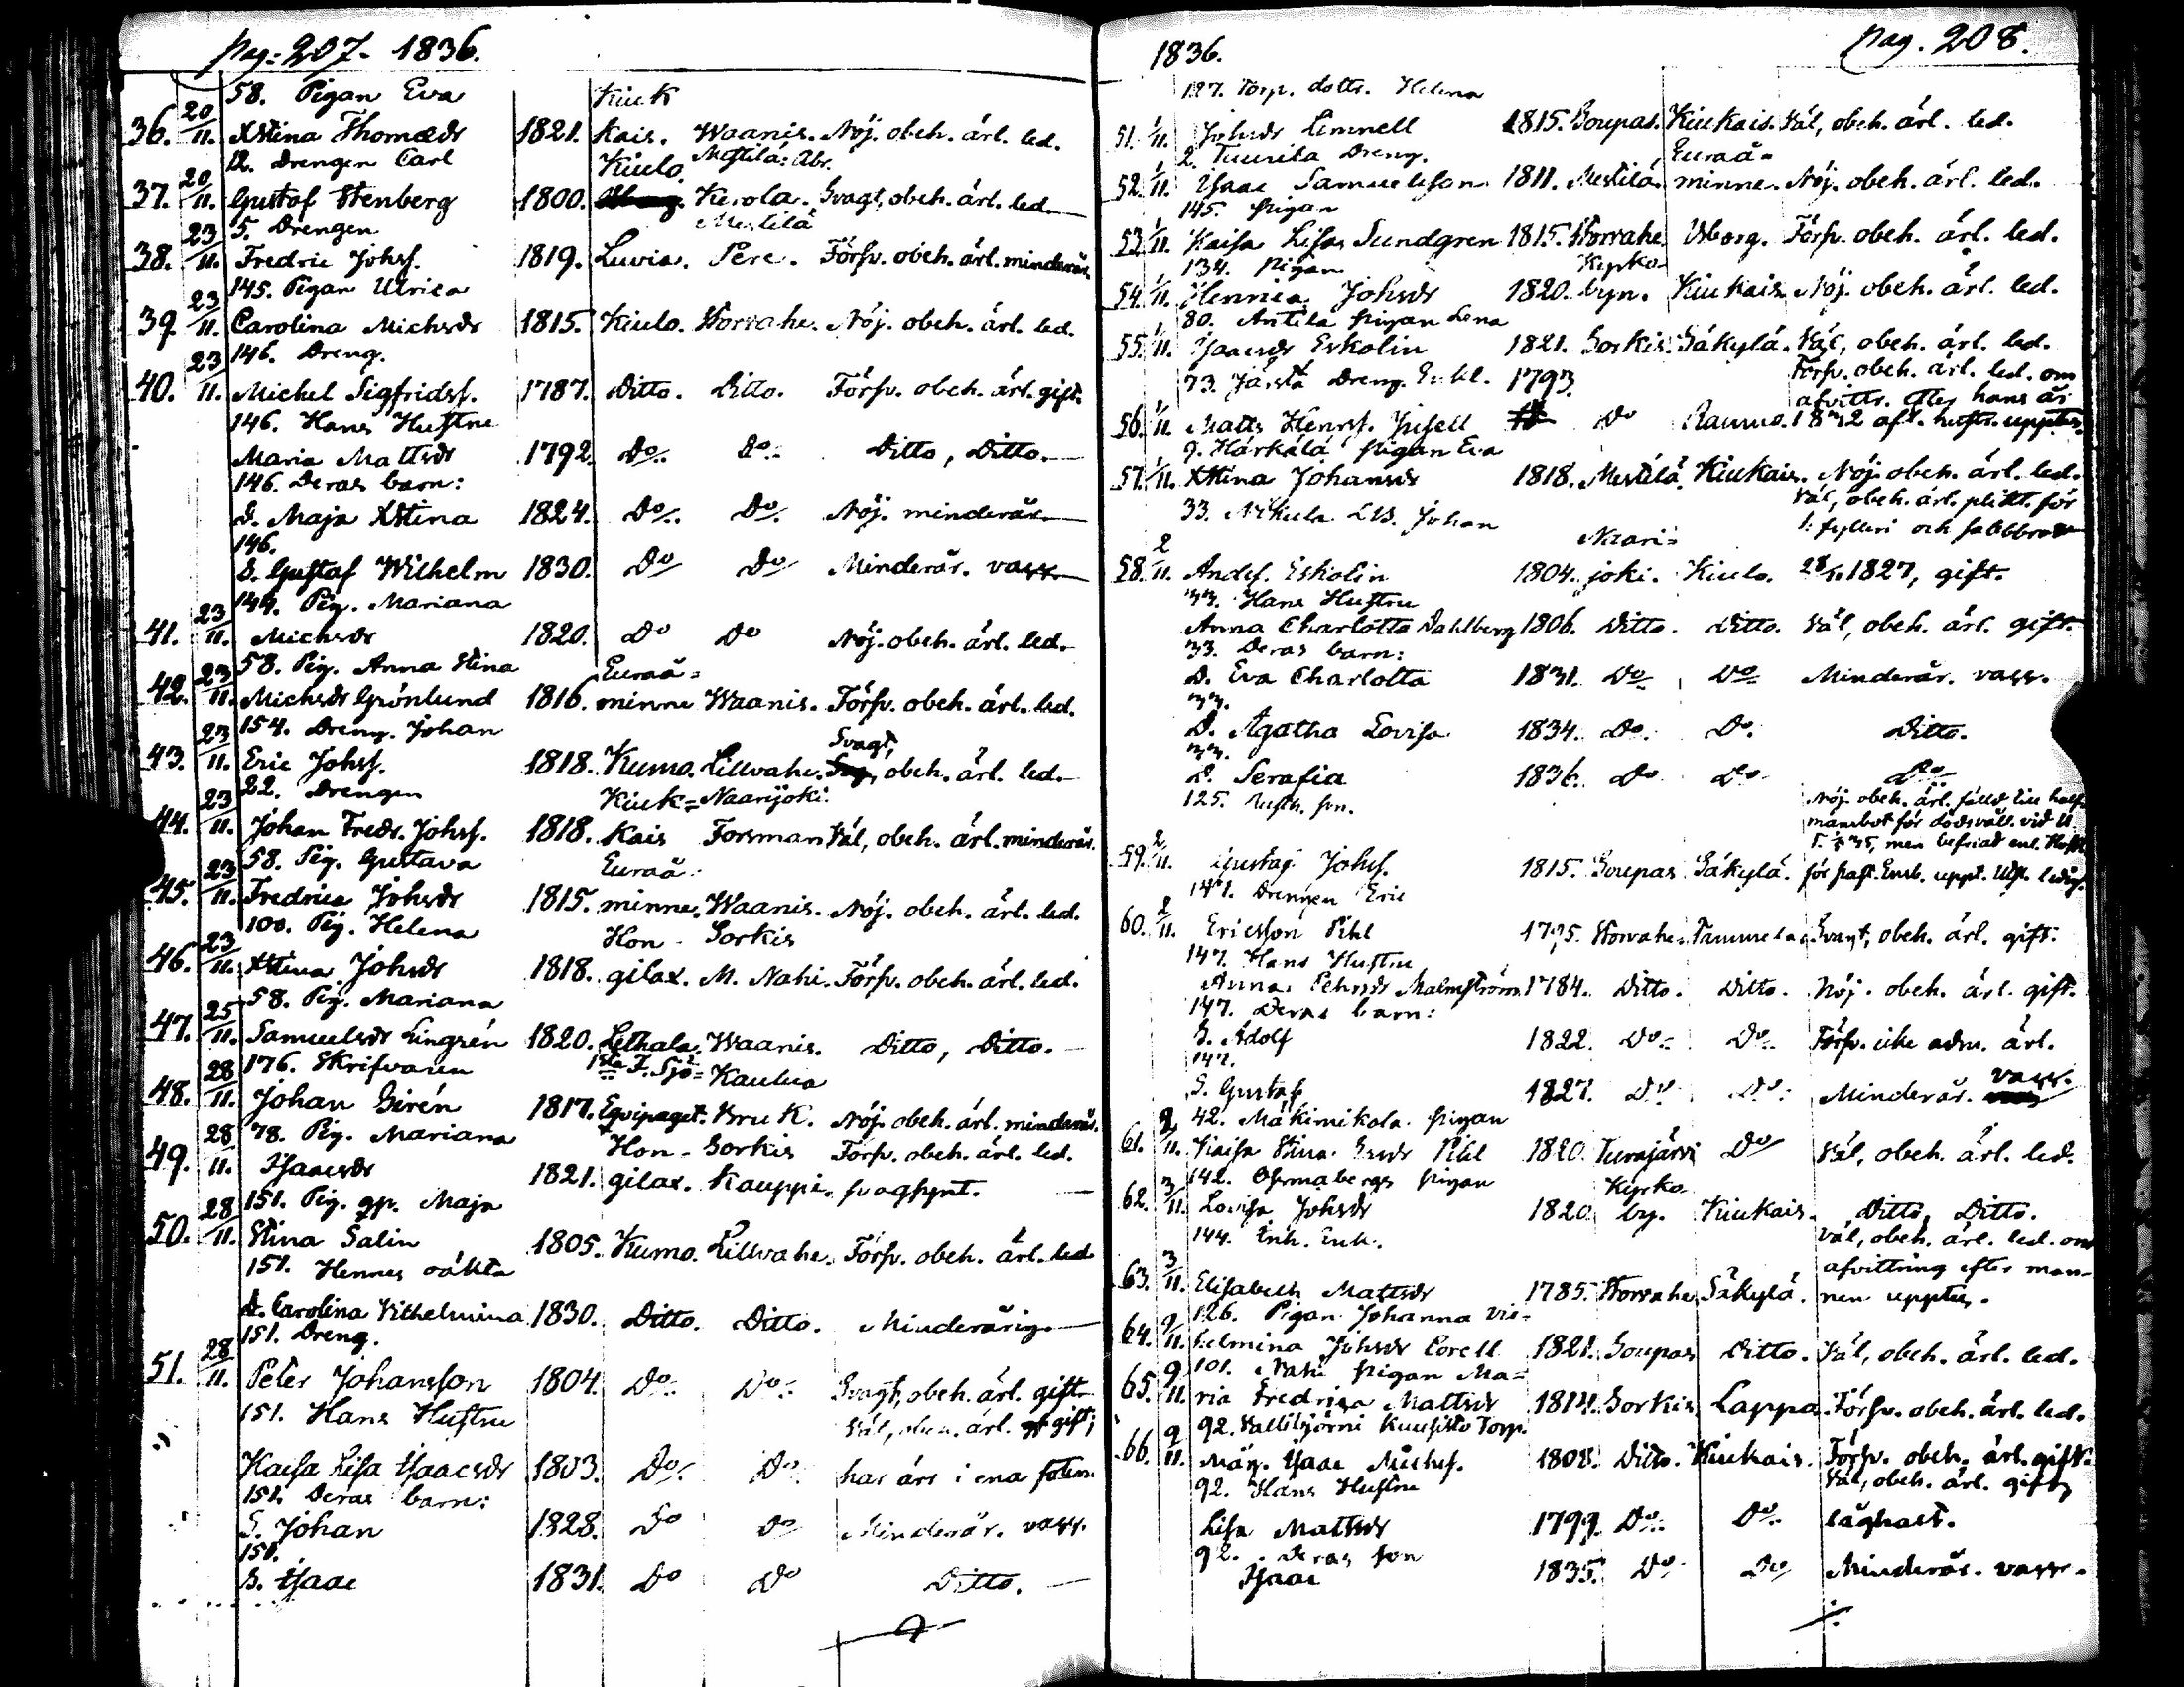 pag: 207- 1836.
58. Pigan Eva Kiuk
36. 20/11. Xstina Thomædr 1821. kais. Waanis. Nöj. obeh. ärl. led.
12. Drengen Carl Kiulo. Mestilä: Abr.
37. 20/11. Gustaf Stenberg 1800. Kerola. Svagt, obeh. ärl. led.
5. Drengen Mestilä
38. 23/11. Fredric Johsf. 1819. Luvia. Pere. Försv. obeh. ärl. minderår.
145. Pigan Ulrica
39. 23/11. Carolina Michsdr 1815. Kiulo. Worvahe. Nöj. obeh. ärl. led.
146. Dreng.
40. 23/11. Michel Sigfridsf. 1787. Ditto. Ditto. Försv. obeh. ärl. gift.
146. Hans Hustru
Maria Mattsdr 1792. Do. Do. Ditto, Ditto.
146. Deras barn:
D. Maja Xstina 1824. Do. Do. Nöj. minderår.
146.
S. Gustaf Wilhelm 1830. Do Do Minderår. vacc.
144. Pig. Mariana
41. 23/11. Michsdr 1820. Do Do Nöj. obeh. ärl. led.
58. Pig. Anna Stina Euraå=
42. 23/11. Michsdr Grönlund 1816. minne Waanis. Försv. obeh. ärl. led.
154. Dreng. Johan Svagt,
43. 23/11. Eric Johsf. 1818. Kumo. Lillvahe. obeh. ärl. led.
22. Drengen Kiuk= Naarijoki.
44. 23/11. Johan Fredr. Johsf. 1818. kais Forsman Väl, obeh. ärl. minderår.
58. Pig. Gustava Euraå
45. 23/11. Fredrica Johsdr 1815. minne. Waanis. Nöj. obeh. ärl. led.
100. Pig. Helena Hon- Sorkis
46. 23/11. Xstina Johsdr 1818. gilax. M. Nahi. Försv. obeh. ärl. led.
58. Pig. Mariana
47. 25/11. Samuelsdr Lingrén 1820. Lethala. Waanis. Ditto, Ditto.
176. Skrifvaren 1sta F. Sjö= Kautua
48. 28/11. Johan Sirén 1817. Eqvipaget. Bruk. Nöj. obeh. ärl. minderår.
78. Pig. Mariana Hon- Sorkis Försv. obeh. ärl. led.
49. 28/11. Isaacsdr 1821. gilax. Kauppi.
151. Pig. qp. Maja
50. 28/11. Stina Salin 1805. Kumo. Lillvahe. Försv. obeh. ärl. led
151. Hennes oäkta
d. Carolina Vilhelmina 1830. Ditto. Ditto. Minderårig.
151. Dreng.
51. 28/11. Peter Johansson 1804. Do. Do. Svagt, obeh. ärl. gift
151. Hans Hustru Väl, obeh. ärl. gift;
Kaisa Lisa Isaacsdr 1803. Do. Do. har ärr i ena foten.
151. Deras barn:
S. Johan 1828. Do Do Minderår. vacc.
151.
S. Isaac 1831. Do Do Ditto.
1836. pag. 208.
127. Torp. dottr. Helena
51. 1/11. Johsdr Linnell 1815. Soupas. Kiukais. Väl, obeh. ärl. led.
2. Tuurila Dreng. Euraå=
52. 1/11. Isaac Samuelsson 1811. Mestilä. minne. Nöj. obeh. ärl. led.
145. Pigan
53. 1/11. Kaisa Lisa Sundgren 1815. Worvahe. Försv. obeh. ärl. led.
134. Pigan Kyrko-
54. 1/11. Henrica Johsdr 1820. byn. Kiukais. Nöj. obeh. ärl. led.
80. Antila Pigan Lena
55. 1/11. Isaacsdr Eskolin 1821. Sorkis. Säkylä. Väl, obeh. ärl. led.
73. Jaista Dreng. Enkl. 1793. Försv. obeh. ärl. led. om
56. 1/11. Matts Henrsf. Do Raumo.
9. Härkälä Pigan Eva
57. 1/11. Xstina Johansdr 1818. Mestilä. Kiukais. Nöj. obeh. ärl. led.
33. LB. Johan Väl, obeh. ärl. plikt. för
Naari= 1. fylleri och sabbbrott
58. 2/11. Andsf. Eskolin 1804. joki. Kiulo. 1827, gift.
33. Hans Hustru
Anna Charlotta Dahlberg 1806. Ditto. Ditto. Väl, obeh. ärl. gift.
33. Deras barn:
D. Eva Charlotta 1831. Do Do Minderår. vacc.
33.
D. Agatha Lovisa 1834. Do. Do. Ditto.
33.
D. Serafia 1836. Do Do Do
125. Nöj. obeh. ärl.
59. 2/11. Gustaf Johsf. 1815. Soupas Säkylä.
147. Drengen Eric
60. 2/11. Ericsson Pihl Worvahe. Tammela. Svagt, obeh. ärl. gift.
147. Hans Hustru
Anna Pehrsdr Malmström. 1784. Ditto. Ditto. Nöj. obeh. ärl. gift.
147. Deras barn:
S. Adolf 1822. Do. Do. Försv. icke adm. ärl.
147. vacc.
S. Gustaf 1827. Do Do. Minderår.
42. Mäkimikola Pigan
61. 2/11. Kaisa Stina Pihl 1820. Turajärvi Do Väl, obeh. ärl. led.
142. Pigan Kyrko
62. 3/11. Lovisa Johsdr 1820. by. Kiukais. Ditto, Ditto.
144. Inh. Enk. Väl, obeh. ärl. led. om
afvittring efter man-
63. 3/11. Elisabeth Mattsdr 1785. Worvahe Säkylä. nen uppter.
126. Pigan Johanna Vil-
64. 9/11. helmina Johsdr Corell 1821. Soupas Ditto. Väl, obeh. ärl. led.
101. Nahi Pigan Ma=
65. 9/11. ria Fredrica Mattsdr 1814. Sorkis. Lappa. Försv. obeh. ärl. led.
92. Torp.
66. 9/11. Måg. Isaac Michsf. 1808. Ditto. Kiukais. Försv. obeh. ärl. gift.
92. Hans Hustru Väl, obeh. ärl. gift,
Lisa Mattsdr 1799. Do. Do. låghalt.
92. Deras son
Isaac 1835. Do Do Minderår. vacc.